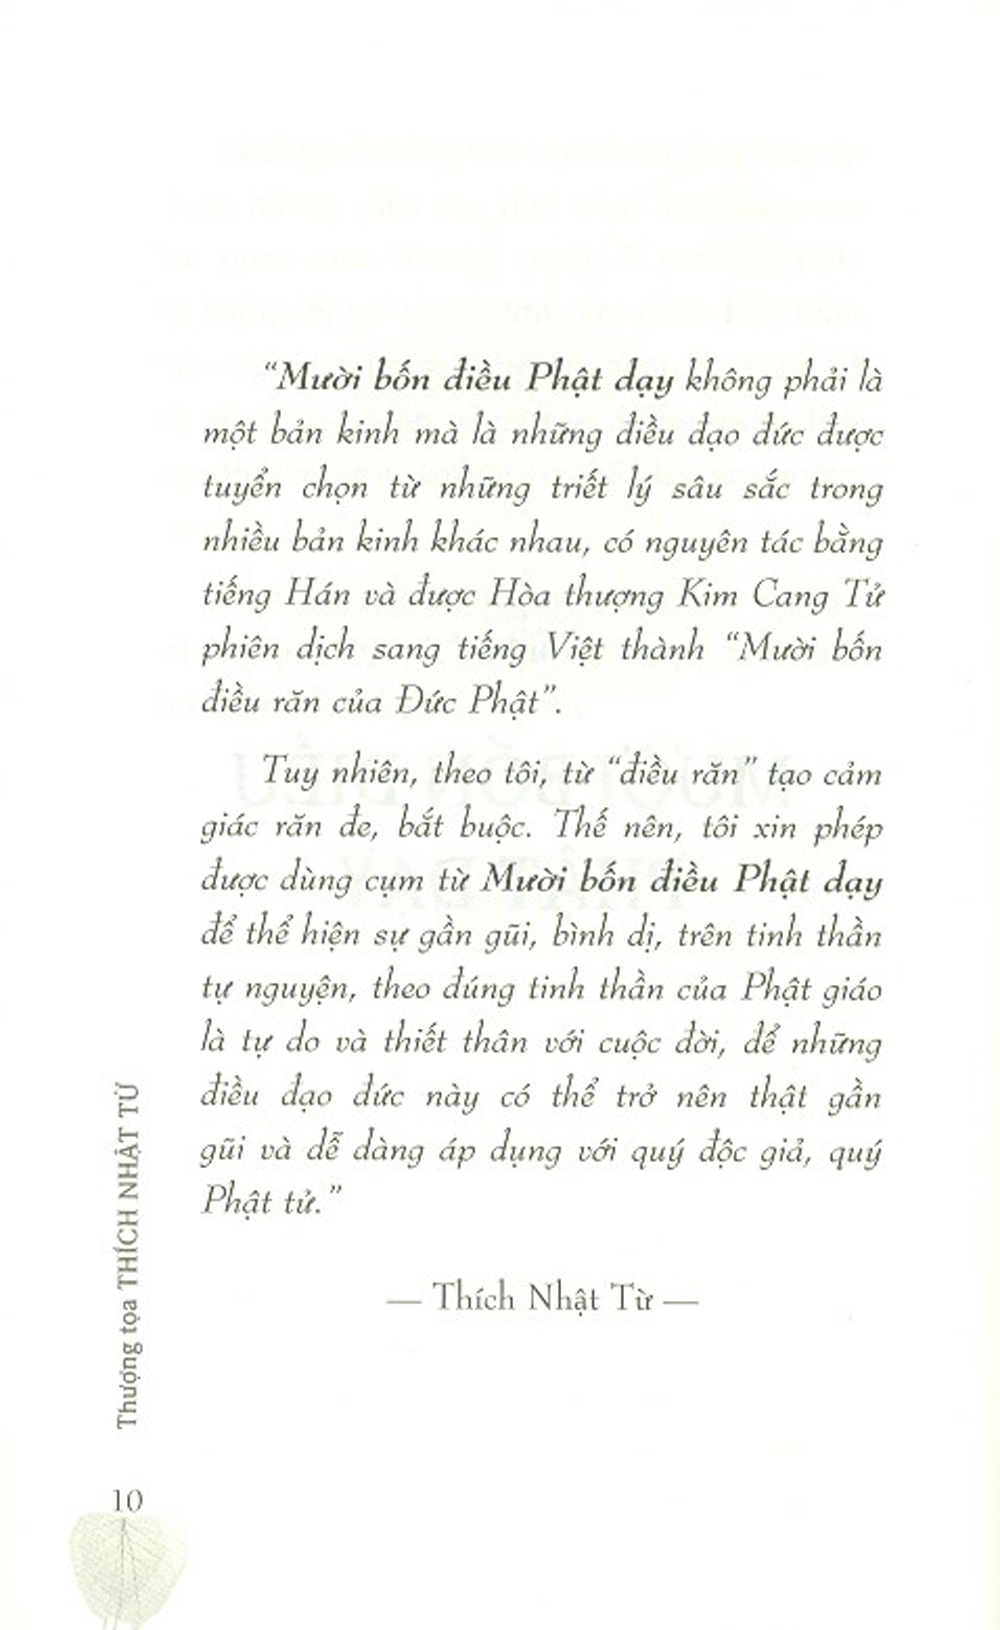 “Mười bốn điều Phật dạy không phải là
một bản kinh mà là những điều đạo đức được
tuyển chọn từ những triết lý sâu sắc trong
nhiều bản kinh khác nhau, có nguyên tác bằng
tiếng Hán và được Hòa thượng Kim Cang Tử
phiên dịch sang tiếng Việt thành “Mười bốn
điều răn của Đức Phật”.
Tuy nhiên, theo tôi, từ “điều răn” tạo cảm
giác răn đe, bắt buộc. Thế nên, tôi xin phép
được dùng cụm từ Mười bốn điều Phật dạy
để thể hiện sự gần gũi, bình dị, trên tinh thần
tự nguyện, theo đúng tinh thần của Phật giáo
là tự do và thiết thân với cuộc đời, để những
điều đạo đức này có thể trở nên thật gần
gũi và dễ dàng áp dụng với quý độc giả, quý
Phật tử.”
— Thích Nhật Từ —
Thượng tọa THÍCH NHẬT TỪ
10